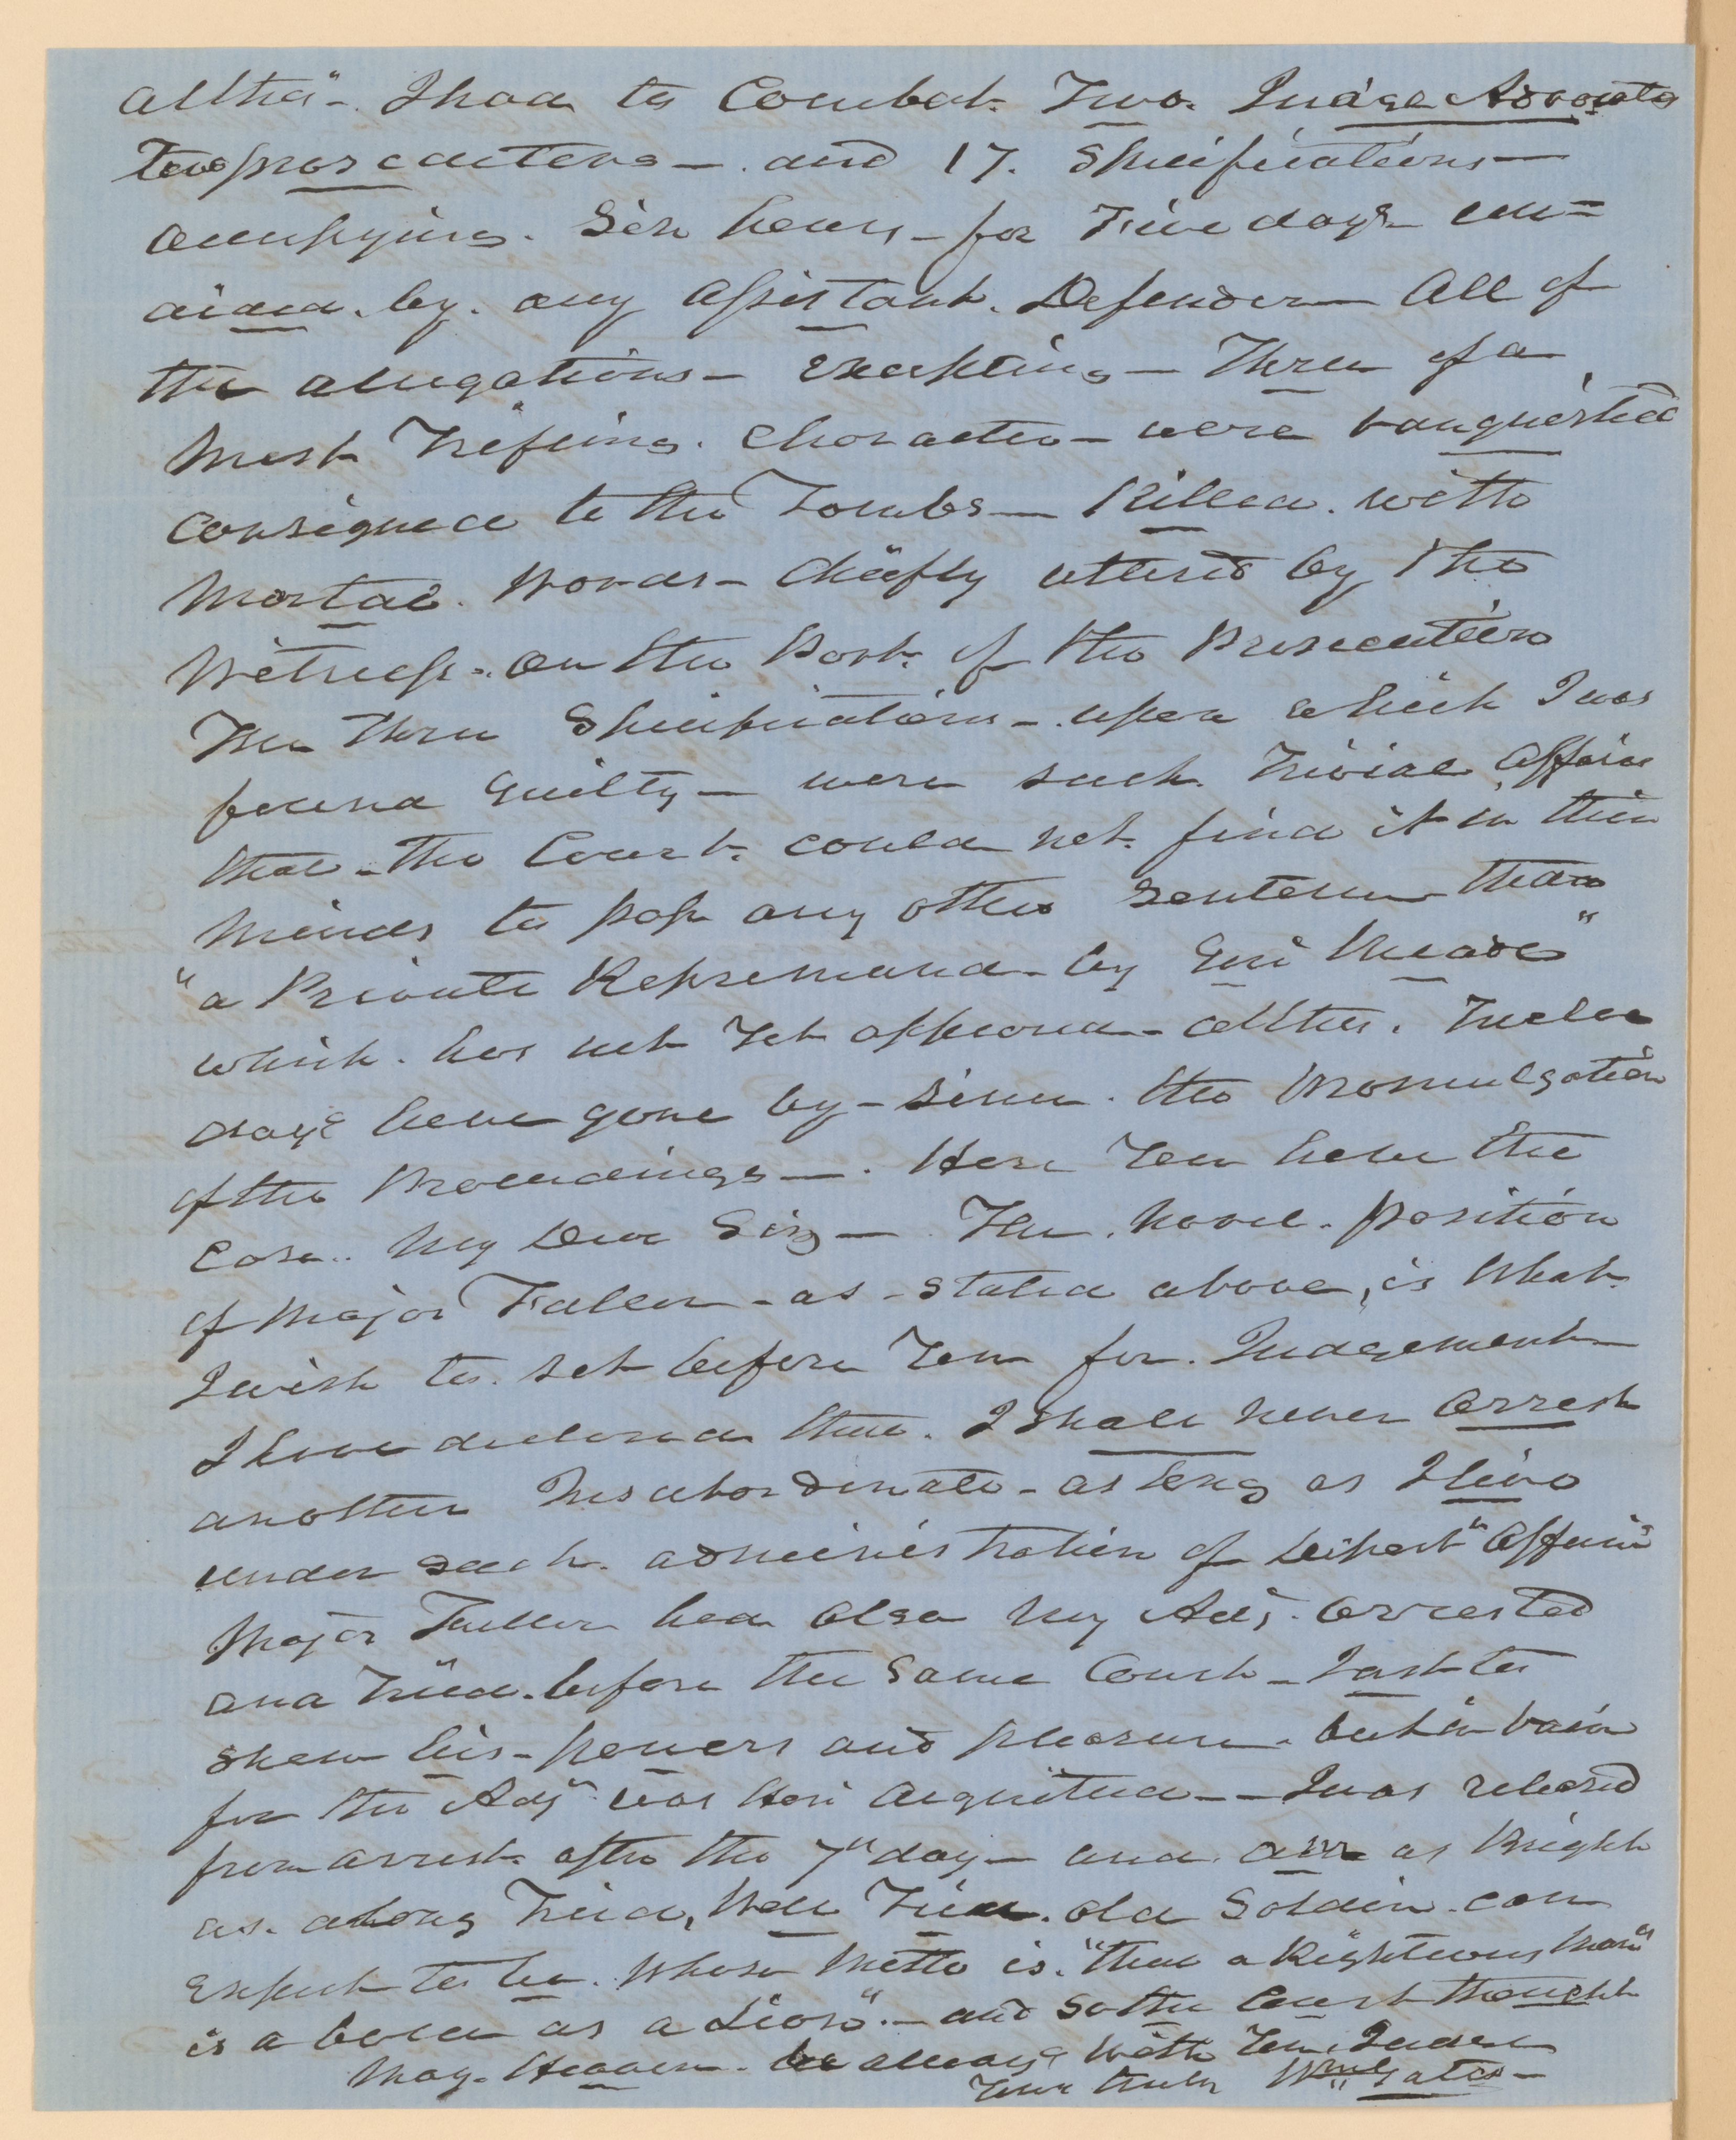 altho'- I had to Combat. Two. Judge Advocates
Two prosecutors - and 17. Specifications -
occupying. Six hours - for Five days - un=
aided. by. any assistant. Defender - All of
the allegations - Excepting - Three of a
most Trifling. Character - were vanquished
consigned to the Tombs - Killed. with
Mortal. Words - Chiefly uttered by the
Witness. on the Part. of the Prosecution
The Three Specifications - upon which I was
found guilty - were such. Trivial Affairs
that - the Court. could not. find it in their
minds to pass any other sentence than
"a Private Reprimand - by Genl Meade"
which. has not yet appeared - altho. Twelve
days have gone by - since. the Promulgation
of the Proceedings - . Here You have the
Case.. My Dear Sir - The. novel. position
of Major Fuller - as - stated above, is What
I wish to. set before You for. Judgement
I have declared that. I shall never arrest
another Insubordinate - as long as I live
under such. administration of "Affairs"
Major Fuller had also my Adj. arrested
and Tried. before the Same Court - Just to
shew his - powers and pleasure. but in vain
for the Adj. was Hon. acquitted - - I was released
from arrest. after the 7" day - and. am as Bright
as. a long Tried, Well Tried. old Soldier. can
expect to be. Whose Motto is. "that a Righteous Man"
is a bold as a Lion". - and so the Court thought
May. Heaven. be always With You. Judge
Your truly Wm Gates -